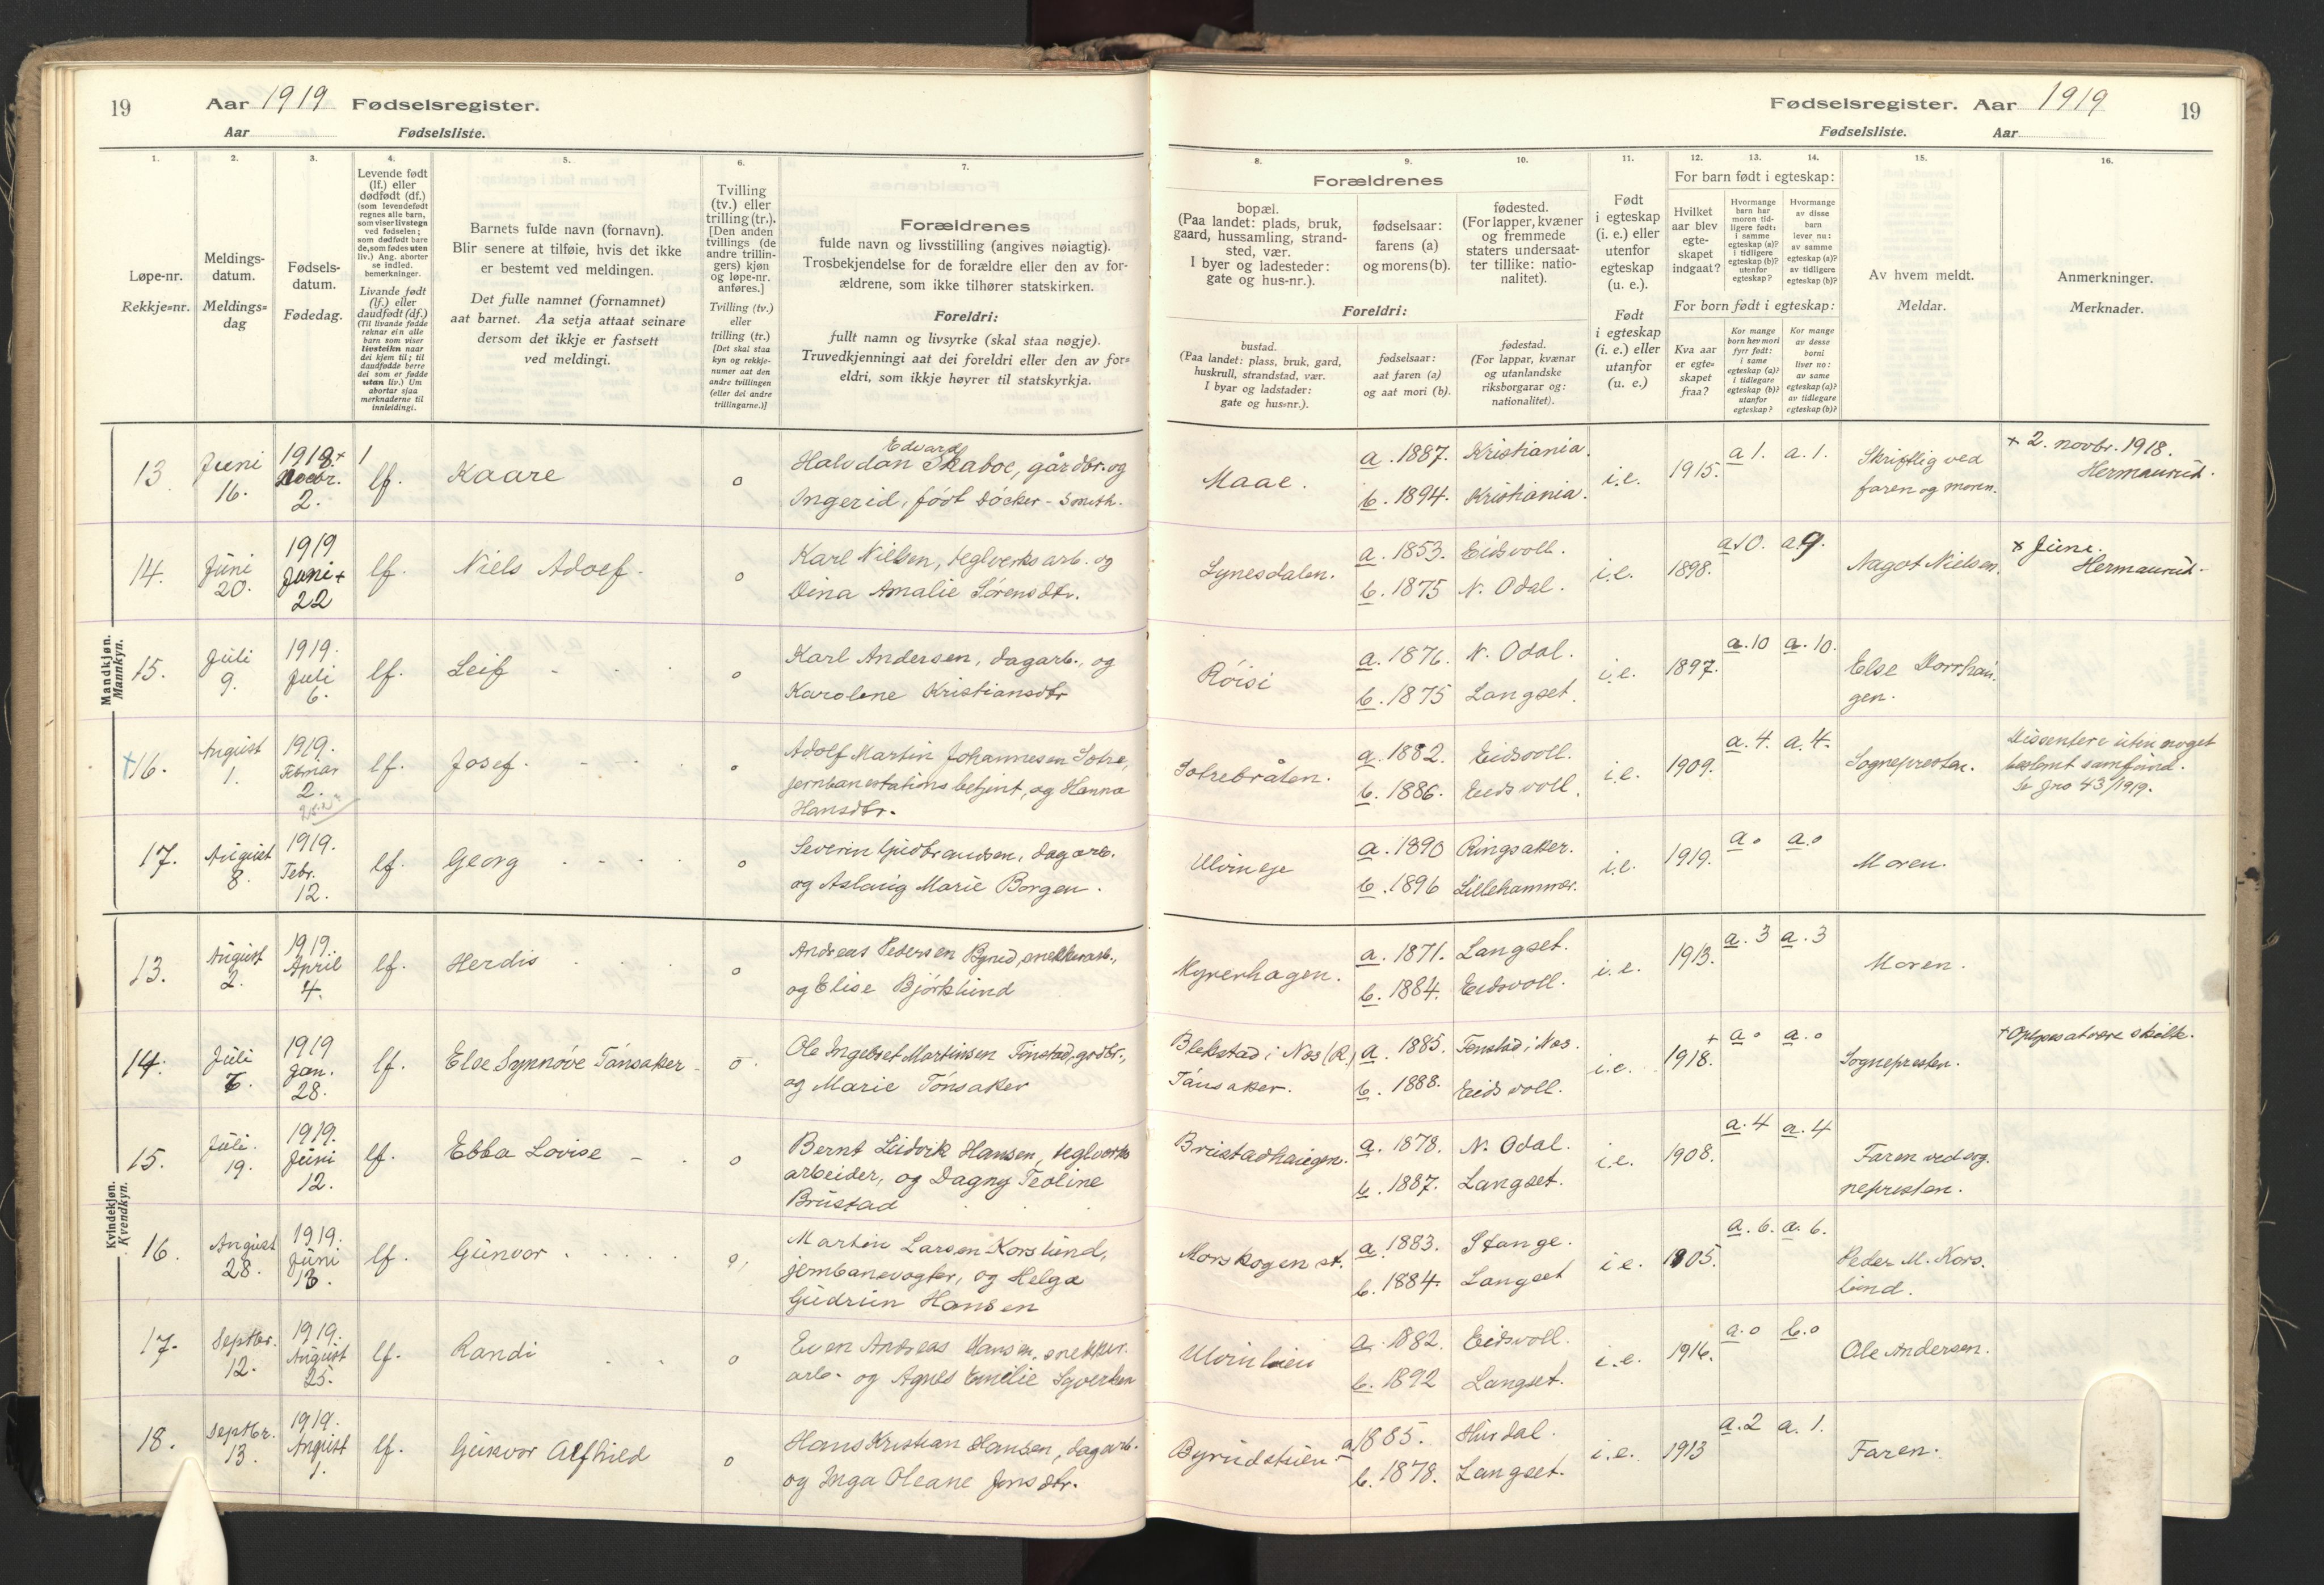 19
Aar 1919 Fødselsregister.
Aar Fødselsliste.
1.
Løpe-nr.
Rekkje=nr.
2.
Meldings-
datum.
Meldings=
dag
3.
Fødsels-
datum.
Fødedag.
4.
Levende født
(lf.) eller
dødfødt (df.)
(som levendefødt
regnes alle barn,
som viser livstegn
ved fødselen;
som dødfødt bare
de, som fødes uten
liv.) Ang. aborter
se indled.
bemerkninger.
Livande født
(lf.) eller
daudfødt (df.)
(Til livande fødde
reknar ein alle
barn som viser
livsteikn naar
dei kjem til; til
daudfødde berre
dei som er fødde
utan liv.) Um
abortar sjaa
merknaderne til
innleidingi.
5.
Barnets fulde navn (fornavn).
Blir senere at tilføie, hvis det ikke
er bestemt ved meldingen.
Det fulle namnet (fornamnet)
aat barnet. Aa setja attaat seinare
dersom det ikkje er fastsett
ved meldingi.
6.
Tvilling
(tv.) eller
trilling (tr.).
[Den anden
tvillings (de
andre trillin-
gers) kjøn
og løpe-nr.
anføres.]
Tvilling (tv.)
eller
trilling (tr.)
[Det skal staa
kyn og rekkje-
numer aat den
andre tvillingen
(eller dei andre
trillingarne.)]
7.
Forældrenes
fulde navn og livsstilling (angives nøiagtig).
Trosbekjendelse for de forældre eller den av for-
ældrene, som ikke tilhører statskirken.
Foreldri:
fullt namn og livsyrke (skal staa nøgje).
Truvedkjenningi aat dei foreldri eller den av for=
eldri, som ikkje høyrer til statskyrkja.
Mandkjøn.
Mannkyn.
13 Juni 16. 1918+ Novbr. 2. lf. Kaare o
Edvard
Halvdan Skaboe, gårdbr. og
Ingerid, født Döcker-Smith.
14. Juni 20. 1919 Juni+ 22 lf. Niels Adolf o
Karl Nielsen, teglverksarb. og
Dina Amalie Sörensdtr.
15. Juli 9. 1919. Juli 6. lf. Leif o
Karl Andersen, dagarb., og
Karolene Kristiansdtr
16. August 1. 1919. Februar 2. lf. Josef. o
Adolf Martin Johannesen Solre,
jernbanestations betjent, og Hanna
Hansdtr.
17. August 8. 1919. Febr. 12. lf. Georg o
Severin Gudbrandsen, dagarb.
og Aslaug Marie Borgen.
Kvindekjøn.
Kvendkyn.
13. August 2. 1919. April 4. lf. Herdis o
Andreas Pedersen Byrud, snekkerarb.,
og Elise Björklund
14. Juli 7. 1919 Jan. 28. lf. Else Synnöve Tönsaker o
Ole Ingebret Martinsen Tönstad, grdbr.,
og Marie Tönsaker
15. Juli. 19. 1919. Juni 12. lf. Ebba Lovise o
Bernt Ludvik Hansen, teglverks
arbeider, og Dagny Teoline
Brustad
16. August 28. 1919. Juni 13. lf. Gunvor o
Martin Larsen Korslund,
jernbanevogter, og Helga
Gudrun Hansen
17. Septbr. 12. 1919. August 25. lf. Randi o
Even Andreas Hansen, snekker.
arb. og Agnes Emilie Syversen
18. Septbr. 13. 1919. August 1. lf. Gunvor Alfhild o
Hans Kristian Hansen, dagarb.
og Inga Oleane Jensdtr.
Fødselsregister. Aar 1919
19
Fødselsliste. Aar
8.
Forældrenes
bopæl.
(Paa landet: plads, bruk,
gaard, hussamling, strand-
sted, vær.
I byer og ladesteder:
gate og hus-nr.).
Foreldri:
bustad.
(Paa landet: plass, bruk, gard,
huskrull, strandstad, vær.
I byar og ladstader:
gate og hus=nr.).
9.
fødselsaar:
farens (a)
og morens (b).
fødselsaar:
aat faren (a)
og aat mori (b).
10.
fødested.
(For lapper, kvæner
og fremmede
staters undersaat-
ter tillike: natio-
nalitet).
fødestad.
(For lappar, kvænar
og utanlandske
riksborgarar og:
nationalitet).
11.
Født
i egteskap
(i. e.) eller
utenfor
egteskap
(u. e.).
Født
i egteskap
(i. e.) eller
utanfor
egteskap
(u. e.)
12.
For barn født i egteskap:
Hvilket
aar blev
egte-
skapet
indgaat?
For born født i egteskap:
Kva aar
er egte-
skapet
fraa?
13.
Hvormange
barn har
moren tid-
ligere født:
i samme
egteskap (a)?
i tidligere
egteskap (b)?
utenfor
egteskap?
Kor mange
born hev mori
fyrr født:
i same
egteskap (a)?
i tidlegare
egteskap (b)?
utanfor
egteskap?
14.
Hvormange
av disse
barn
lever nu:
av samme
egteskap (a)?
av tidligere
egteskap (b)?
Kor mange
av desse
borni
liver no:
av same
egteskap (a)?
av tidlegare
egteskap (b)?
15.
Av hvem meldt.
Meldar.
16.
Anmerkninger.
Merknader.
Maae. a. 1887. Kristiania. i.e. 1915. a 1. a. 1.
b. 1894. Kristiania.
Skriftlig ved
faren og moren.
+ 2. novbr. 1918.
Hermansrud.
Lynesdalen. a. 1853. Eidsvoll. i.e. 1898. a 10. a. 9.
b. 1875 N. Odal.
Nagot Nielsen.
+ Juni.
Hermansrud.
Röisi a. 1876. N. Odal. i.e. 1897. a. 10 a. 10.
b. 1875 Langset.
Else Dorrhau-
gen.
Solrebråten. a. 1882. Eidsvoll. i.e. 1909. a. 4. a. 4.
b. 1886. Eidsvoll.
Sogneprester.
Dissentere uten noget
bestemt samfund.
Se Jno 43/1919.
Ulvineje a. 1890 Ringsaker. i.e. 1919. a o a. o
b. 1896 Lillehammer.
Moren.
Myrerhagen. a. 1871. Langset. i.e. 1913. a. 3 a. 3
b. 1884. Eidsvoll.
Moren.
Blekstad i Nes (R.) a. 1885. Tönstad i Nes. i.e. + 1918. a o a. o
Tönsaker. b. 1888. Eidsvoll.
Sognepresten.
+ Oplyses at være skilte.
Brustadhaugen. a. 1878. N. Odal. i.e. 1908. a. 4 a. 4
b. 1887. Langset.
Faren ved sog-
nepresten.
Morskogen st. a. 1883. Stange. i.e. 1905. a. 6. a. 6.
b. 1884. Langset
Peder M. Kors-
lund.
Ulvinlien a. 1882. Eidsvoll. i.e. 1916. a. o b. o
b. 1892 Langset.
Ole Andersen.
Byrudstuen a 1885. Hurdal. i.e. 1913 a. 2 a. 1.
b. 1878. Langset.
Faren.